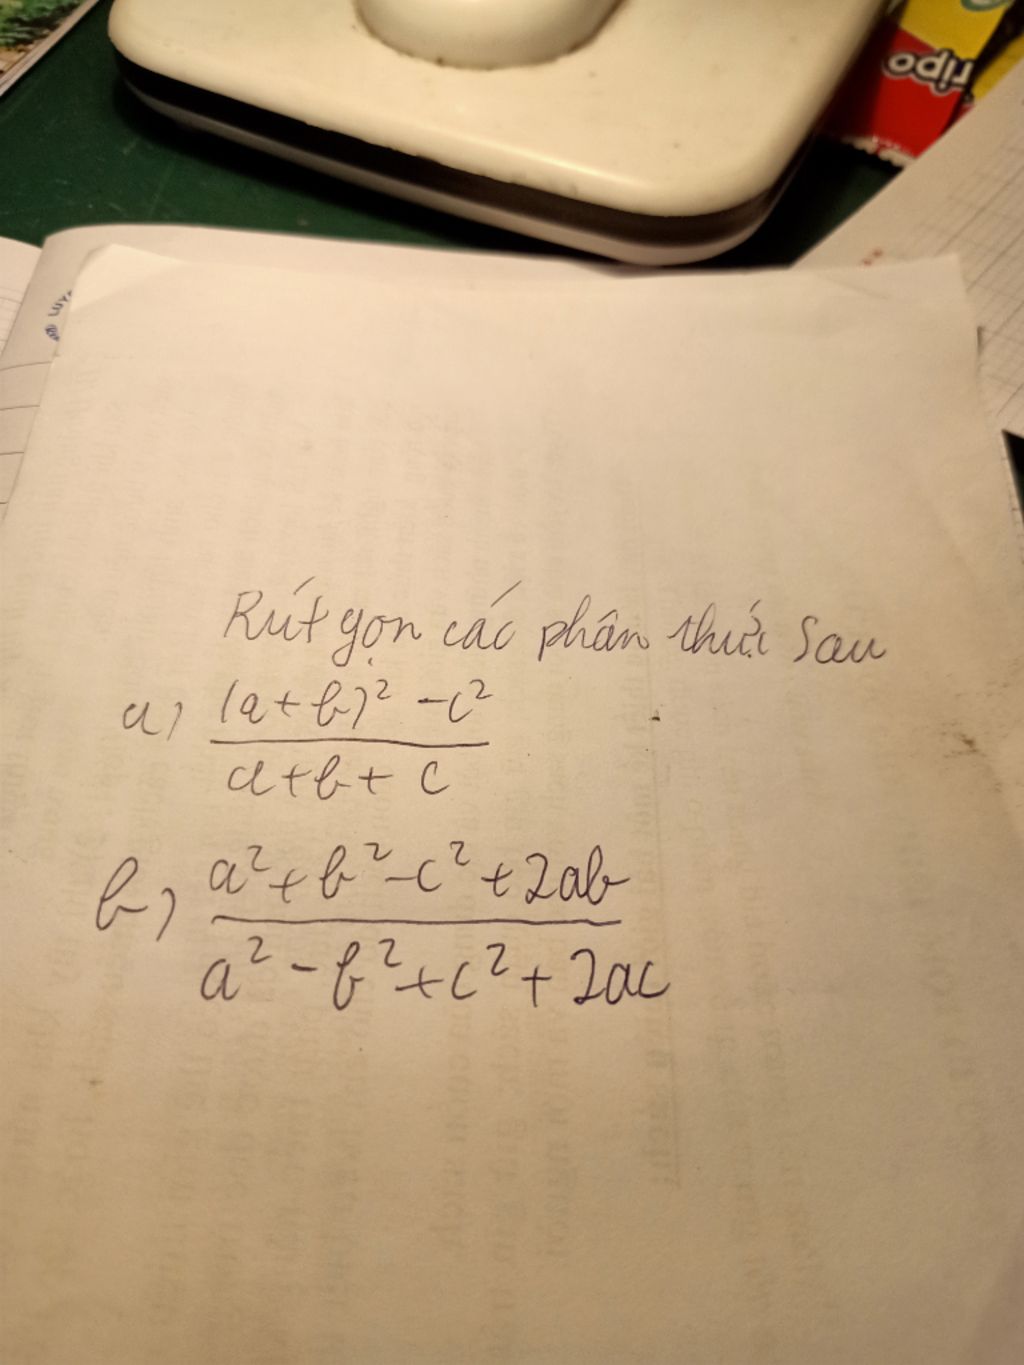 ripo
LUYỆ
Rút gọn các phân thức sau
a) \frac{(a+b)^2-c^2}{a+b+c}
b) \frac{a^2+b^2-c^2+2ab}{a^2-b^2+c^2+2ac}